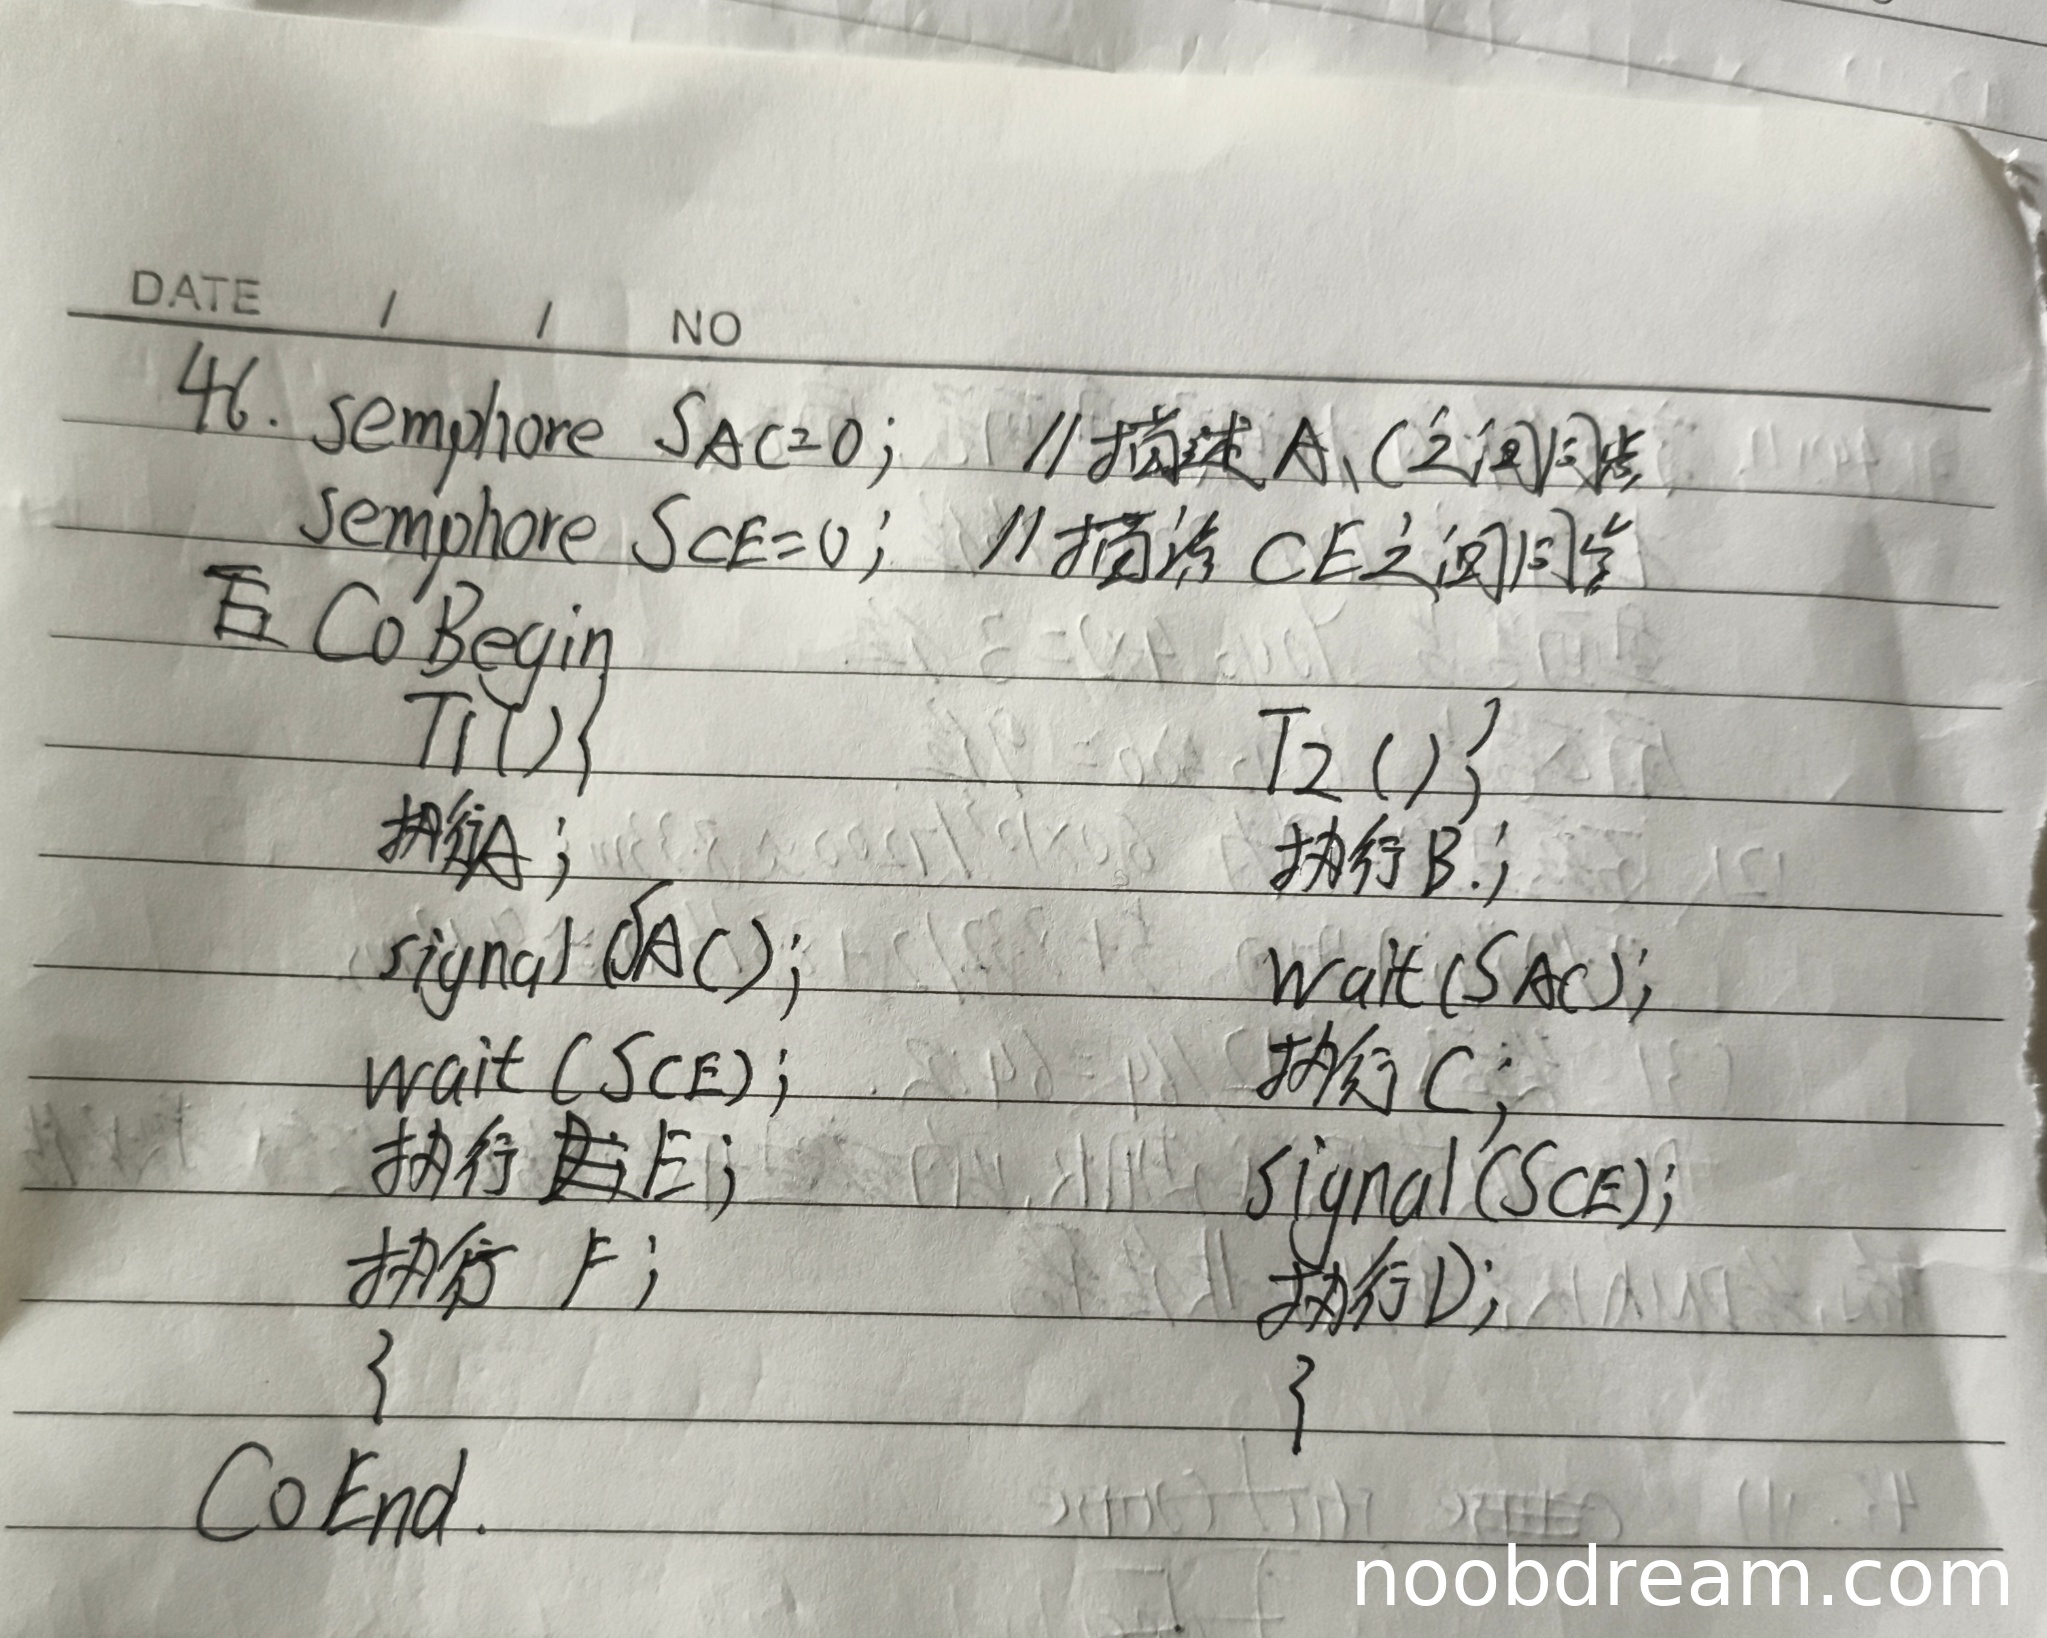 DATE / / NO
46. semphore SAC=0; //描述A、C之间同步
semphore SCE=0; //描述CE之间同步
CoBegin
T1(){ T2(){
执行A; 执行B.;
signal(SAC); wait(SAC);
wait(SCE); 执行C;
执行 E; signal(SCE);
执行 F; 执行D;
} }
CoEnd.
noobdream.com